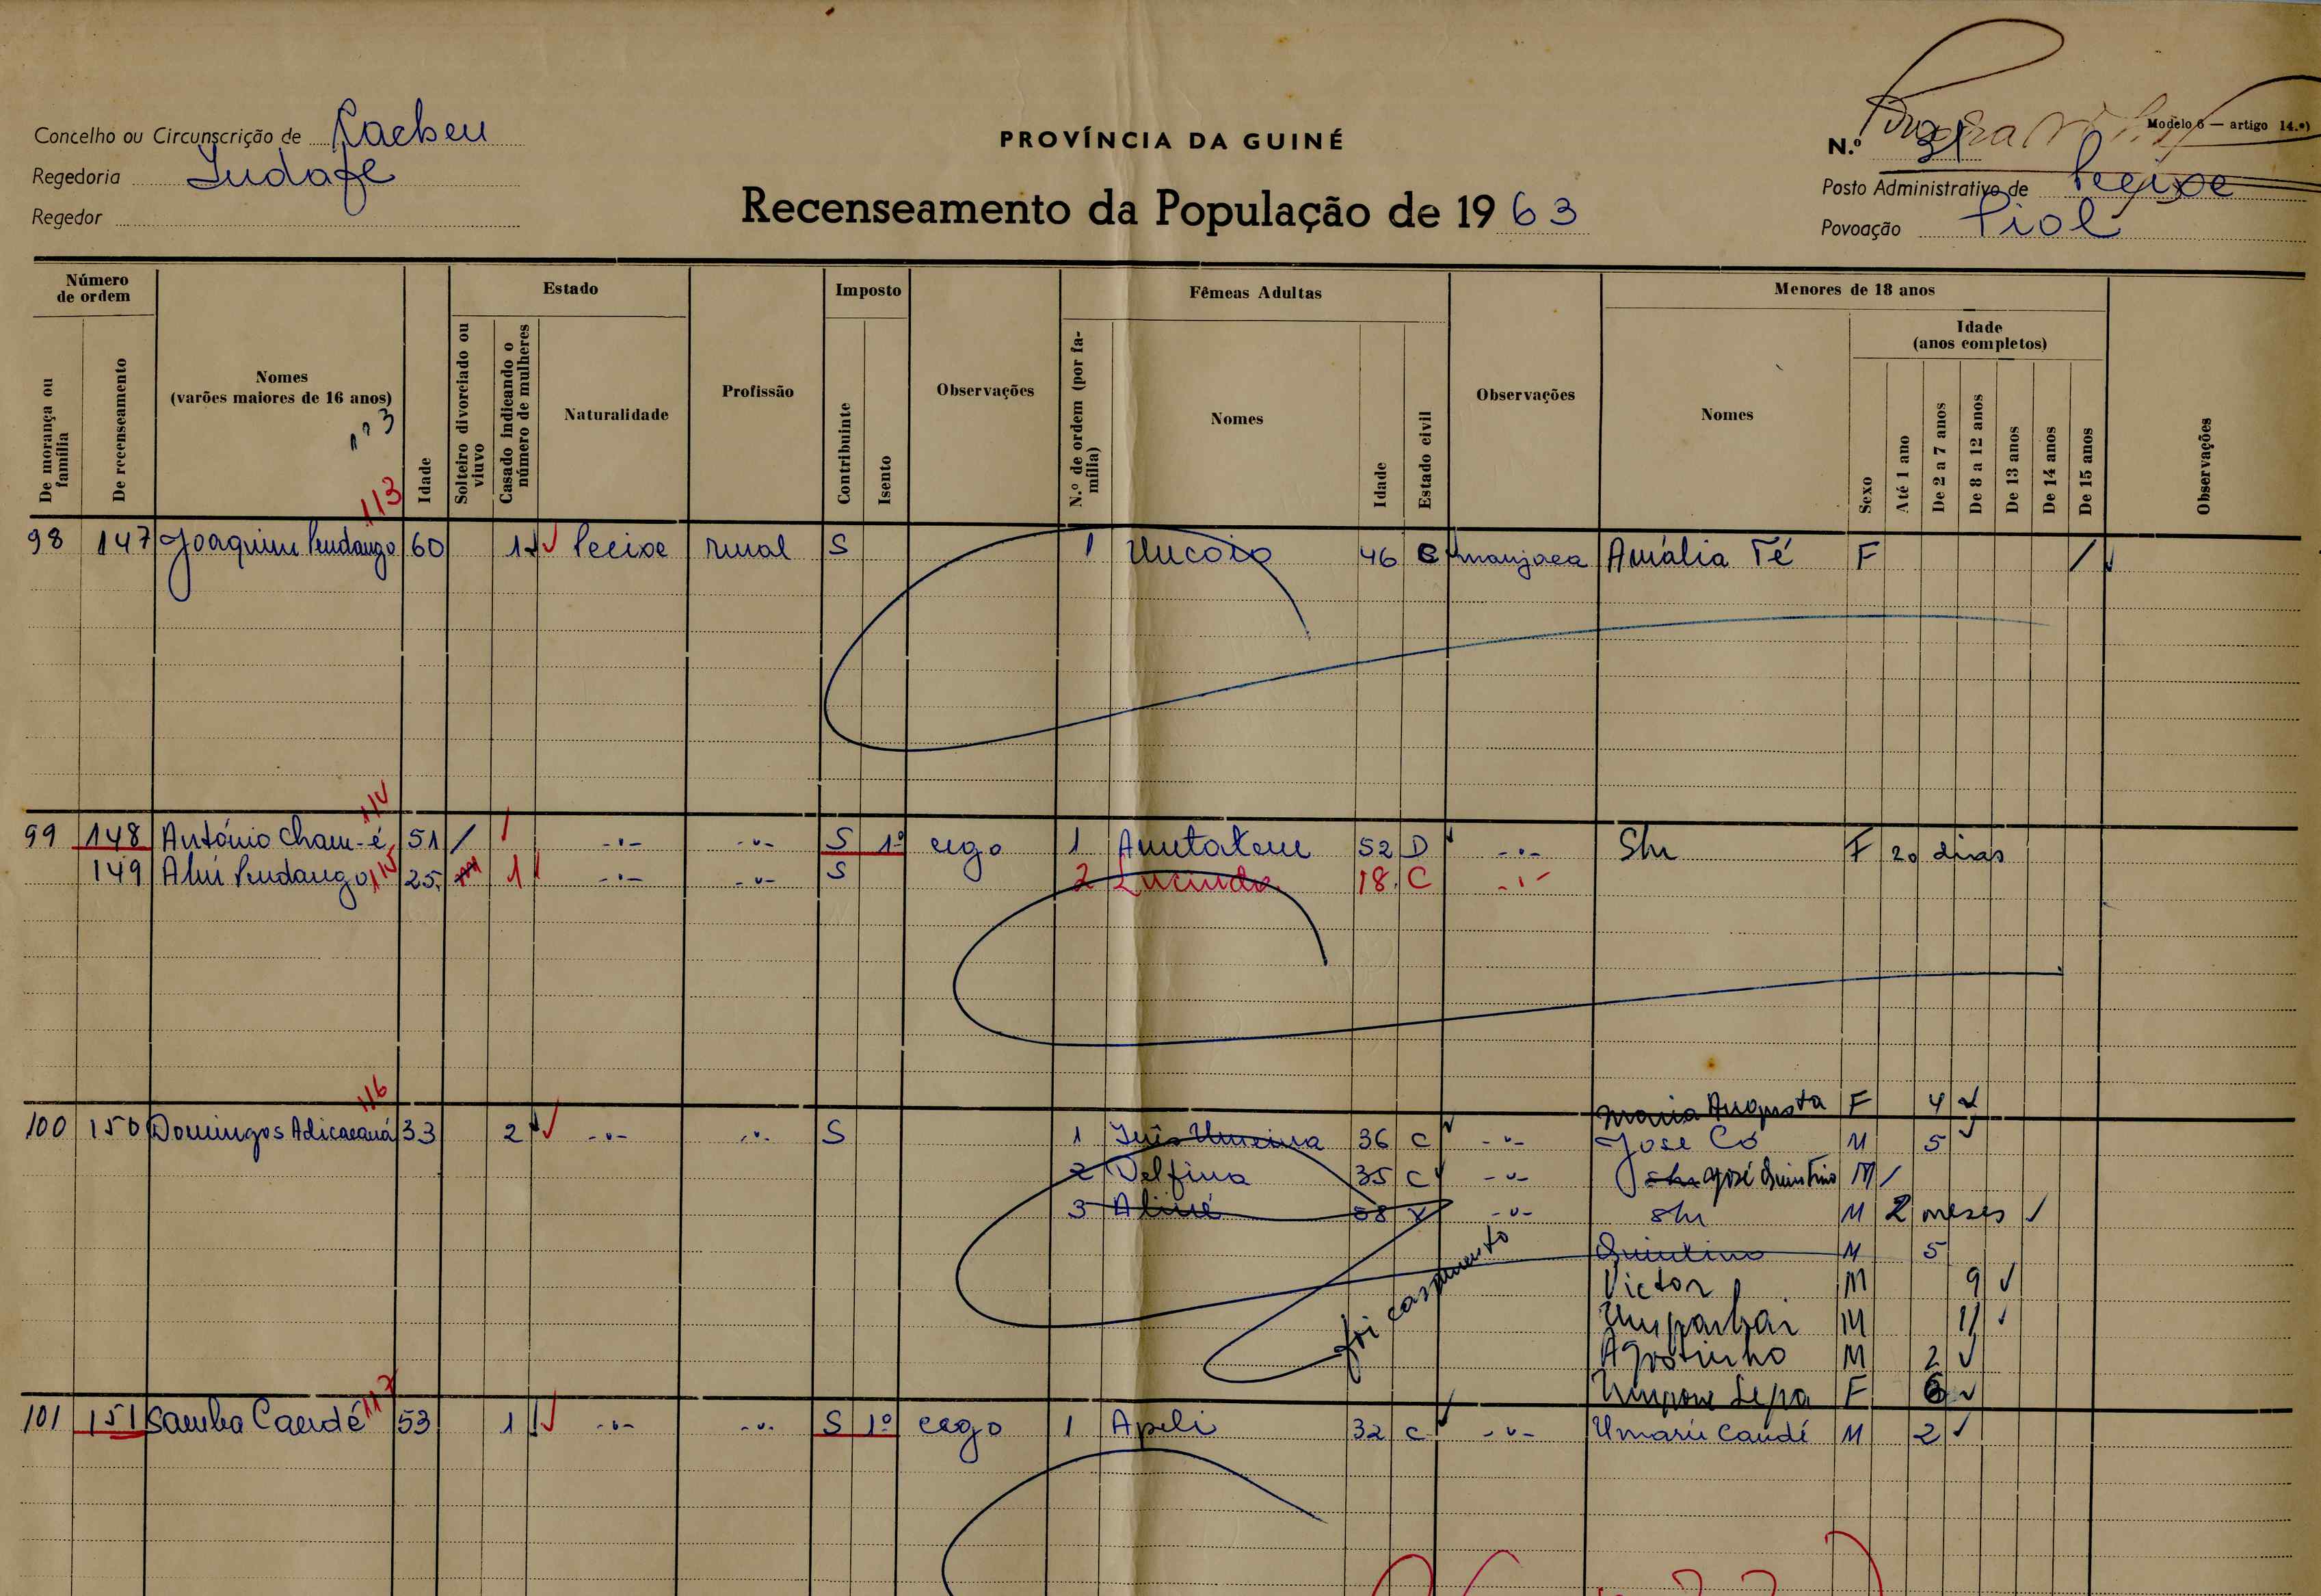 Concelho ou Circunscrição de Cacheu
Regedoria Indafe
Regedor
PROVÍNCIA DA GUINÉ
Recenseamento da População de 1963
Modelo 6 — artigo 14.º)
N.º 31
Posto Administrativo de Pecixe
Povoação Piol
Número de ordem
De morança ou família
De recenseamento
Nomes (varões maiores de 16 anos)
nº 3
Idade
Estado
Solteiro divorciado ou viuvo
Casado indicando o número de mulheres
Naturalidade
Profissão
Imposto
Contribuinte
Isento
Observações
Fêmeas Adultas
N.º de ordem (por família)
Nomes
Idade
Estado civil
Observações
Menores de 18 anos
Nomes
Sexo
Idade (anos completos)
Até 1 ano
De 2 a 7 anos
De 8 a 12 anos
De 13 anos
De 14 anos
De 15 anos
Observações
113
98 147 Joaquim Pendango 60 1 Pecixe rural S 1 Uncoia 46 C manjaca Amália Té F /
114
99 148 António Cham-é 51 / -"- -"- S 1º cego 1 Amtatem 52 D -"- Shr F 20 dias
149 Alui Pendango 115 25 1 -"- -"- S 2 Lucinda 18 C -"-
116
Maria Augusta F 4
100 150 Domingos Adicacaná 33 2 -"- -"- S 1 Inês Umeina 36 C -"- José Có M 5
2 Delfina 35 C -"- shr José Quintino M /
3 Aliné 58 V -"- shr M 2 meses
Quintino M 5
Victor M 9
foi casamento
M 11
Agostinho M 2
F 6
117
101 151 Samba Candé 53 1 -"- -"- S 1º cego 1 Apeli 32 C -"- Umarú Candé M 2